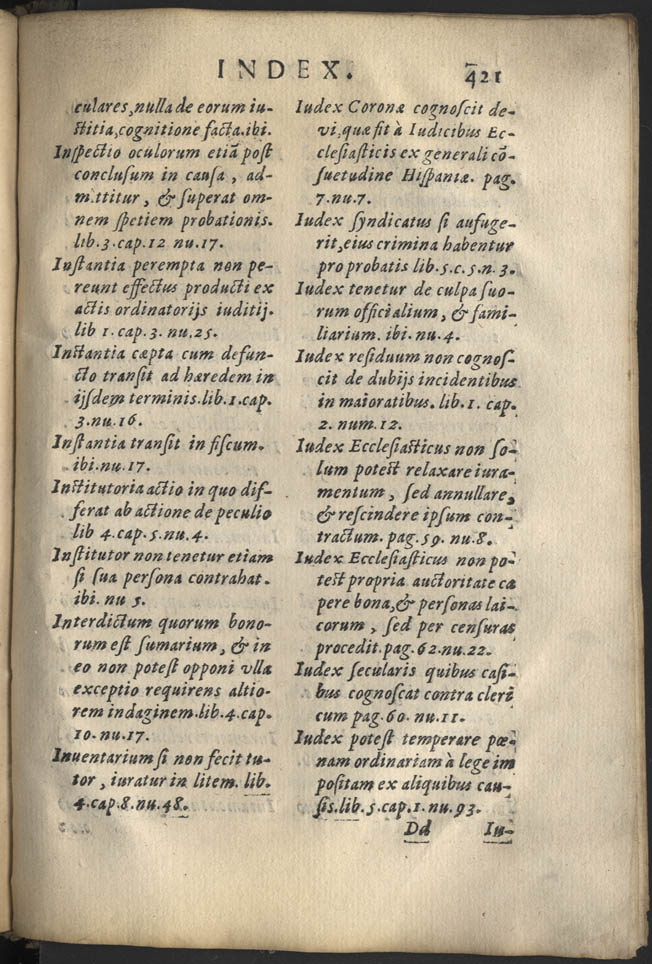 INDEX. 421
culares, nulla de eorum iu-
ſtitia, cognitione facta. ibi.
Inſpectio oculorum etiã poſt
concluſum in cauſa, ad-
mittitur, & ſuperat om-
nem ſpetiem probationis.
lib. 3. cap. 12 nu. 17.
Inſtantia perempta non pe-
reunt effectus producti ex
actis ordinatorijs iuditij.
lib 1. cap. 3. nu. 25.
Inſtantia cæpta cum defun-
cto tranſit ad hæredem in
ijſdem terminis. lib. 1. cap.
3. nu. 16.
Inſtantia tranſit in fiſcum.
ibi. nu. 17.
Inſtitutoria actio in quo dif-
ferat ab actione de peculio
lib 4. cap. 5. nu. 4.
Inſtitutor non tenetur etiam
ſi ſua perſona contrahat.
ibi. nu 5.
Interdictum quorum bono-
rum eſt ſumarium, & in
eo non poteſt opponi vlla
exceptio requirens altio-
rem indaginem. lib. 4. cap.
10. nu. 17.
Inuentarium ſi non fecit tu-
tor, iuratur in litem. lib.
4. cap. 8. nu. 48.
Iudex Coronæ cognoſcit de-
vi, quæ fit à Iudicibus Ec-
cleſiaſticis ex generali cõ-
ſuetudine Hiſpaniæ. pag.
7. nu. 7.
Iudex ſyndicatus ſi aufuge-
rit, eius crimina habentur
pro probatis lib. 5. c. 5. n. 3.
Iudex tenetur de culpa ſuo-
rum officialium, & fami-
liarium. ibi. nu. 4.
Iudex reſiduum non cognoſ-
cit de dubijs incidentibus
in maioratibus. lib. 1. cap.
2. num. 12.
Iudex Eccleſiaſticus non ſo-
lum poteſt relaxare iura-
mentum, ſed annullare,
& reſcindere ipſum con-
tractum. pag. 59. nu. 8.
Iudex Eccleſiaſticus non po-
teſt propria auctoritate ca
pere bona, & perſonas lai-
corum, ſed per cenſuras
procedit. pag. 62. nu. 22.
Iudex ſecularis quibus caſi-
bus cognoſcat contra cleri
cum pag. 60. nu. 11.
Iudex poteſt temperare pœ-
nam ordinariam à lege im
poſitam ex aliquibus cau-
ſis. lib. 5. cap. 1. nu. 93.
Dd Iu-